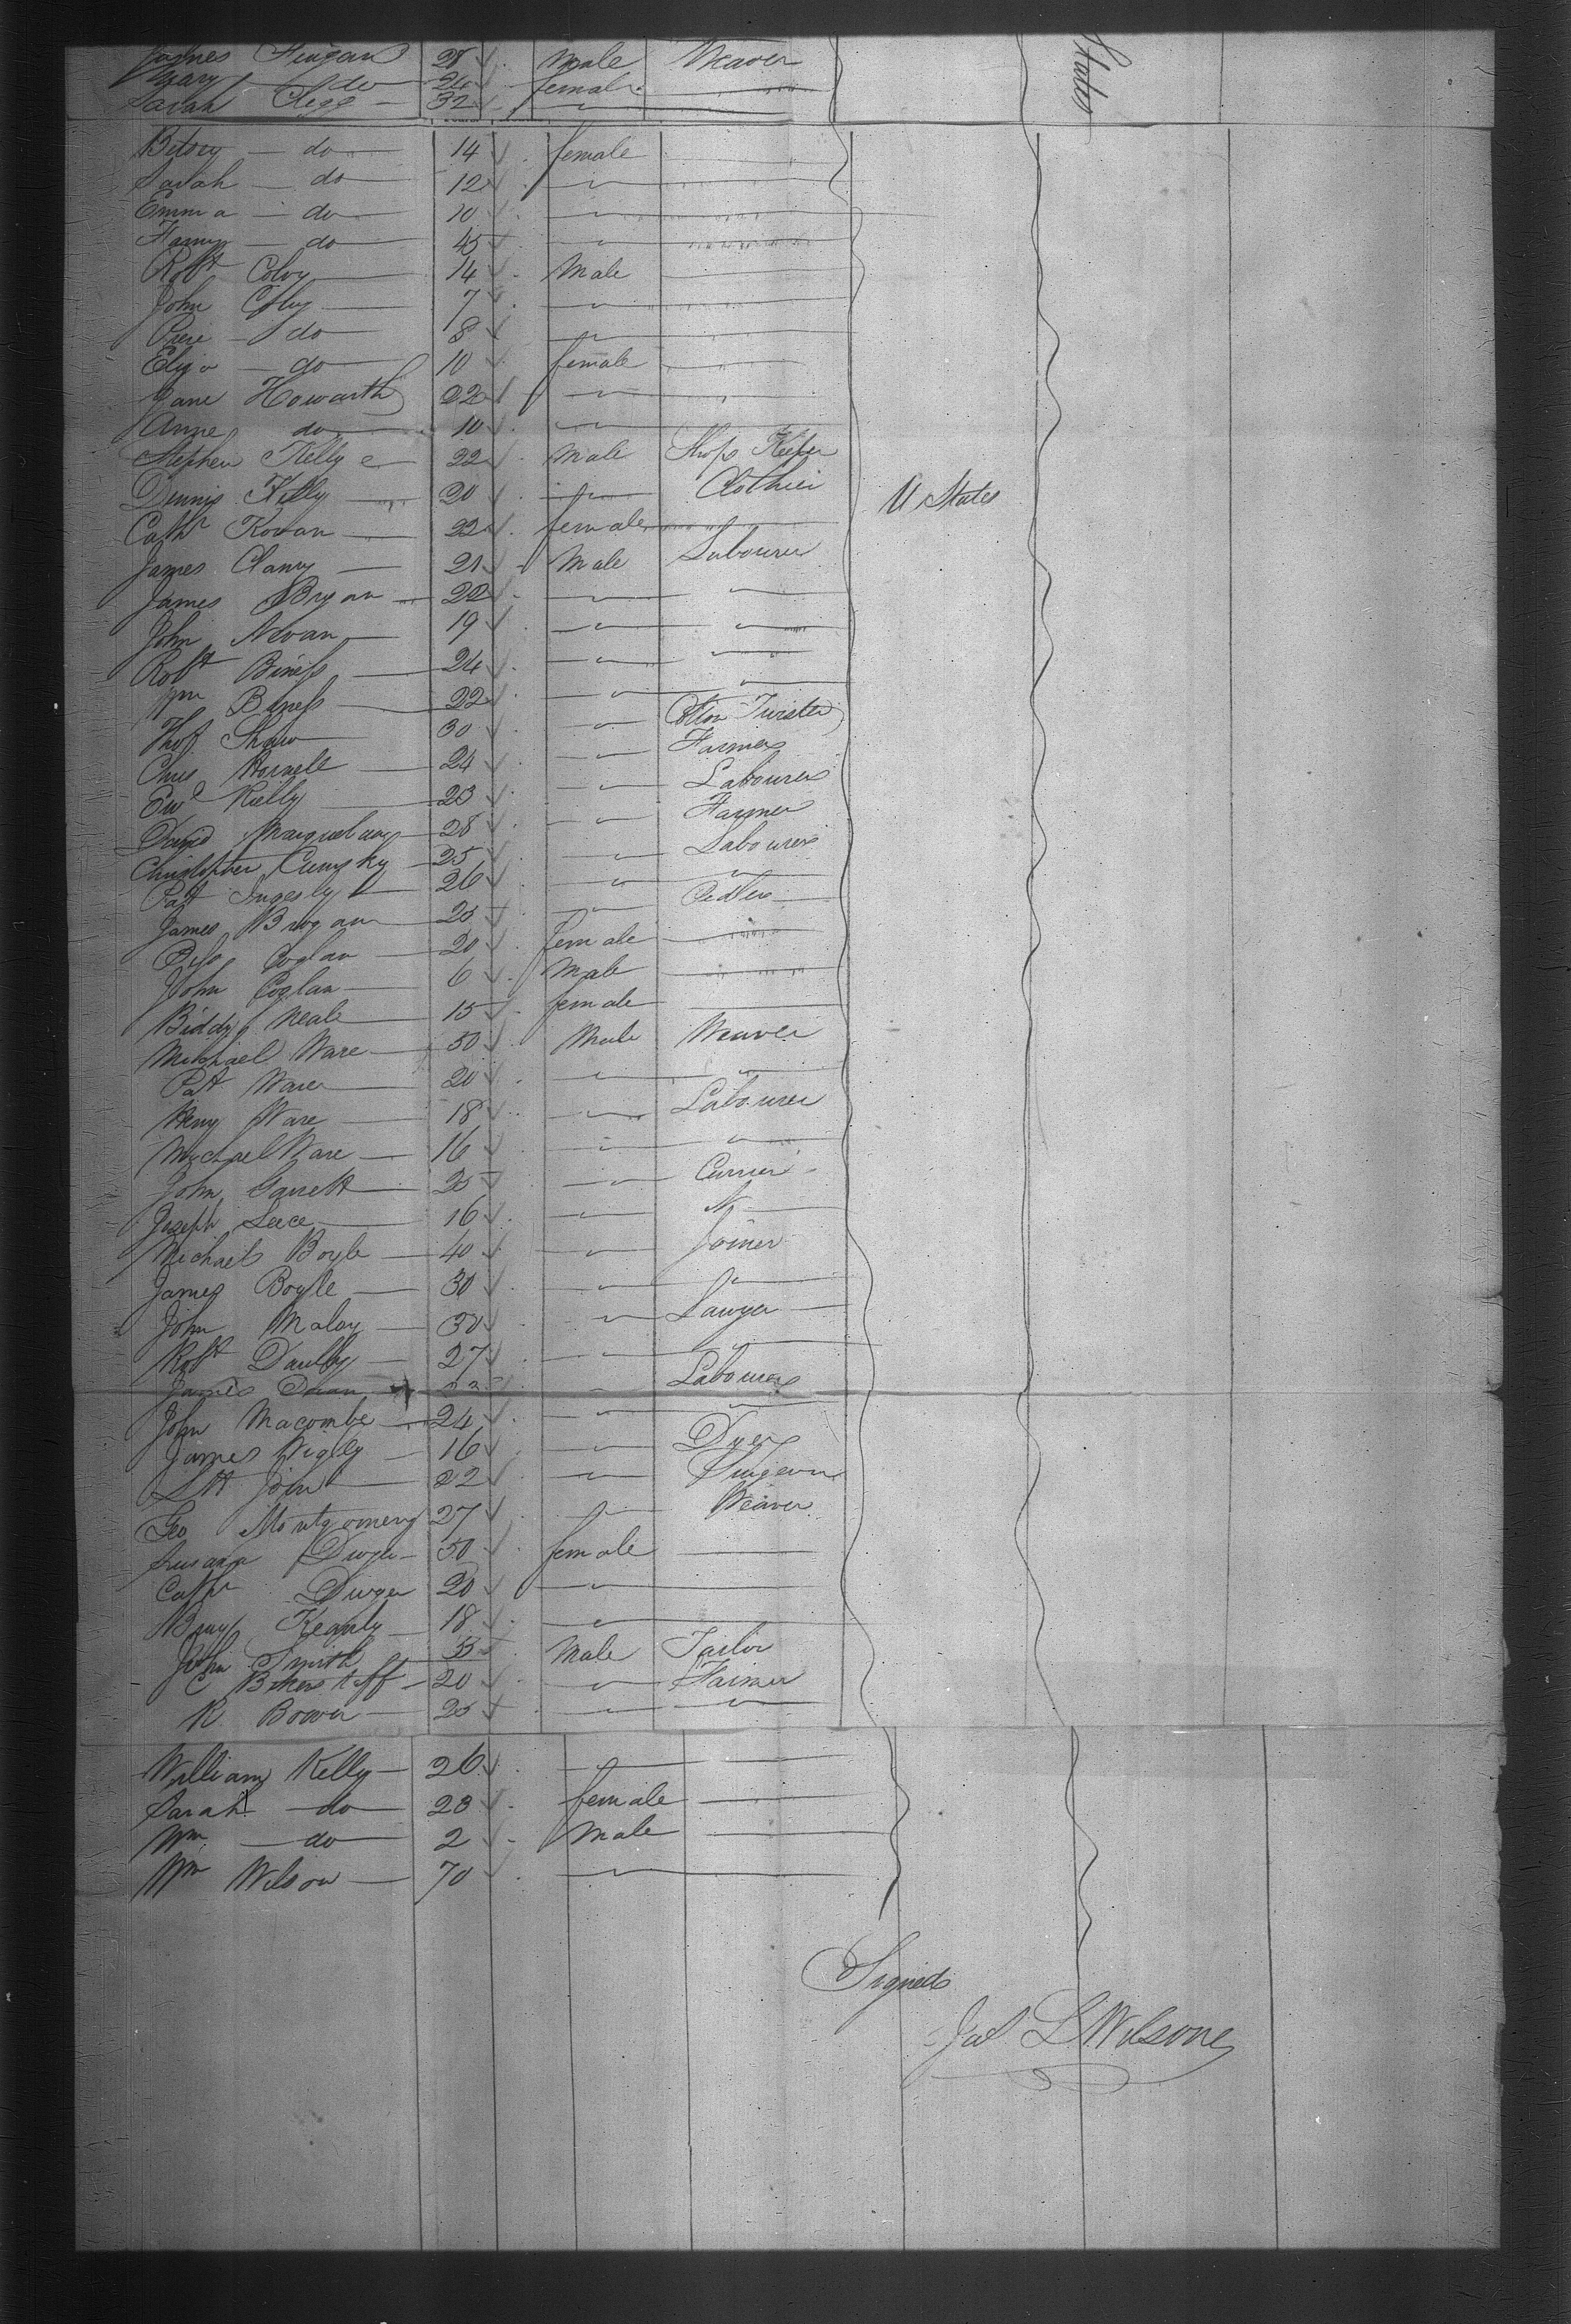 James 28 male Weaver
Mary do 24 female
Sarah Clegg 32 "
States
Betsey do 14 female
Sarah do 12 "
Emma do 10 "
do 45 "
Robt Colvy 14 Male
John 7 "
do 8 "
Eliza do 10 female
Jane Howarth 22 "
Anne do 10 "
Stephen Kelly 22 Male Shop Keeper
Dennis Kelly 20 " Clothier
U States
Cathr Rowan 22 female
James Clancy 21 Male Labourer
James Bryan 22 " "
John 19 " "
Robt 24 " "
Wm 22 " "
Thos Shaw 30 " Cotton Twister
24 " Farmer
Rielly 23 " Labourer
David 28 " Farmer
Christopher 25 " Labourer
Patt 26 " "
James Brogan 25 " Pedler
Coglan 20 female
John Coglan 6 Male
Biddy Neale 15 female
Michael Ware 50 Male Weaver
Patt Ware 20 " "
Heny Ware 18 " Labourer
Michael Ware 16 " "
John Garrett 25 " Currier
Joseph Leece 16 "
Michael Boyle 40 " Joiner
James Boyle 30 " "
John Maloy 30 " Sawyer
Robt Daulby 27 " "
James 23 " Labourer
John Macombe 24 " "
James Wigly 16 " Dyer
22 " Surgeon
Geo Montgomery 27 " Weaver
Susana 50 female
Cathr 20 "
18 "
John Smith 35 Male Tailor
C Bikerstaff 20 " Farmer
R. Bower 25 " "
William Kelly 26 "
Sarah do 23 female
Wm do 2 Male
Wm Wilson 70 "
Signed
Jas L Wilsone